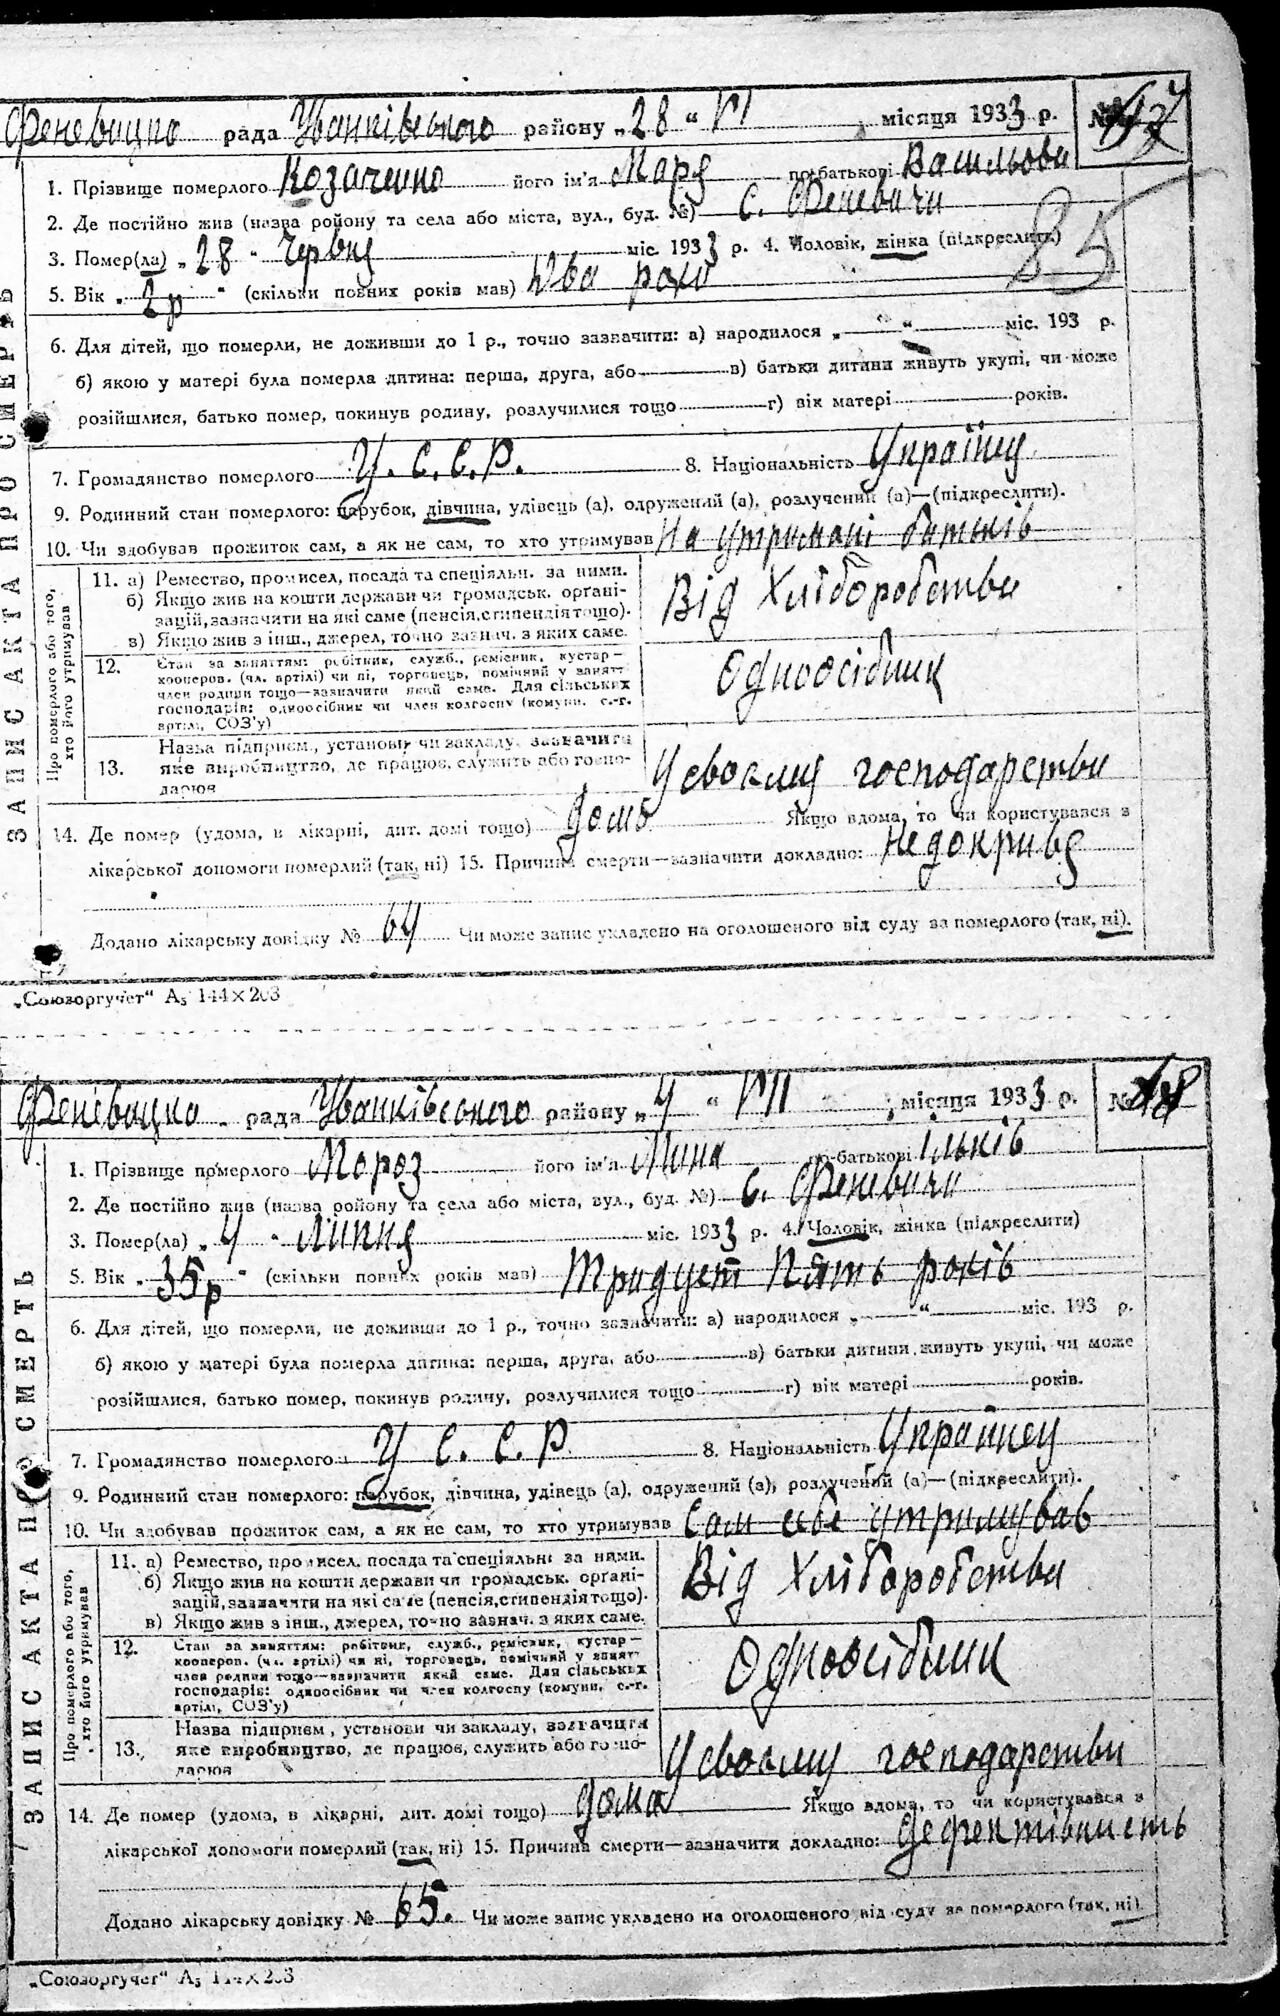 Феневицка рада Іванківського району „28 “ VI місяця 1933 р. №
1. Прізвище померлого Козаченко його ім'я Маря по-батькові Васильови
2. Де постійно жив (назва ройону та села або міста, вул., буд. №) С. Феневичи
3. Помер(ла) „28 “ Червня міс. 1933 р. 4. Чоловік, жінка (підкреслить)
85
5. Вік „ 2р “ (скільки повних років мав) Два роки
6. Для дітей, що померли, не доживши до 1 р., точно зазначити: а) народилося „ “ міс. 193 р.
б) якою у матері була померла дитина: перша, друга, або в) батьки дитини живуть укупі, чи може
розійшлися, батько помер, покинув родину, розлучилися тощо г) вік матері років.
7. Громадянство померлого У.С.С.Р. 8. Національність Українец
9. Родинний стан померлого: парубок, дівчина, удівець (а), одружений (а), розлучений (а)—(підкреслити).
10. Чи здобував прожиток сам, а як не сам, то хто утримував На утримані батьків
ЗАПИС АКТА ПРО СМЕРТЬ
Про померлого або того, хто його утримував
11. а) Ремество, промисел, посада та спеціяльн. за ними.
б) Якщо жив на кошти держави чи громадськ. органі-
зацій, зазначити на які саме (пенсія, стипендія тощо).
в) Якщо жив з інш., джерел, точно зазнач. з яких саме.
Від Хліборобства
12. Стан за заняттям: робітник, служб., ремісник, кустар—
кооперов. (чл. артілі) чи ні, торговець, помічний у занятт
член родини тощо—зазначити який саме. Для сільських
господарів: одноосібник чи член колгоспу (комуни, с.-г.
артілі, СОЗ'у)
Одноосібник
13. Назва підприєм., установи чи закладу, зазначити
яке виробництво, де працює, служить або госпо-
дарює
У своєму господарстви
14. Де помер (удома, в лікарні, дит. домі тощо) Дома Якщо вдома, то чи користувався з
лікарської допомоги померлий (так, ні) 15. Причина смерти—зазначити докладно: Недокривя
Додано лікарську довідку № 64 Чи може запис укладено на оголошеного від суду за померлого (так, ні).
„Союзоргучет“ А5 144×203
Феневицка рада Іванківського району „4 “ VII місяця 1933 р. №
1. Прізвище померлого Мороз його ім'я Мина по-батькові Ільків
2. Де постійно жив (назва ройону та села або міста, вул., буд. №) С. Феневичи
3. Помер(ла) „ 4 “ Липня міс. 1933 р. 4. Чоловік, жінка (підкреслити)
5. Вік „ 35р “ (скільки повних років мав) Тридцет Пять років
6. Для дітей, що померли, не доживши до 1 р., точно зазначити: а) народилося „ “ міс. 193 р.
б) якою у матері була померла дитина: перша, друга, або в) батьки дитини живуть укупі, чи може
розійшлися, батько помер, покинув родину, розлучилися тощо г) вік матері років.
7. Громадянство померлого У С. С. Р 8. Національність Украйнец
9. Родинний стан померлого: парубок, дівчина, удівець (а), одружений (а), розлучений (а)—(підкреслити).
10. Чи здобував прожиток сам, а як не сам, то хто утримував Сам себе утримував
ЗАПИС АКТА ПРО СМЕРТЬ
Про померлого або того, хто його утримував
11. а) Ремество, промисел, посада та спеціяльн за ними.
б) Якщо жив на кошти держави чи громадськ. органі-
зацій, зазначити на які саме (пенсія, стипендія тощо).
в) Якщо жив з інш., джерел, точно зазнач. з яких саме.
Від Хліборобства
12. Стан за заняттям: робітник, служб., ремісник, кустар—
кооперов. (чл. артілі) чи ні, торговець, помічний у занятт
член родини тощо—зазначити який саме. Для сільських
господарів: одноосібник чи член колгоспу (комуни, с.-г.
артілі, СОЗ'у)
Одноосібник
13. Назва підприєм, установи чи закладу, зазначити
яке виробництво, де працює, служить або госпо-
дарює
У своєму господарстви
14. Де помер (удома, в лікарні, дит. домі тощо) Дома Якщо вдома, то чи користувався з
лікарської допомоги померлий (так, ні) 15. Причина смерти—зазначити докладно: Дефективність
Додано лікарську довідку № 65. Чи може запис укладено на оголошеного від суду за померлого (так, ні).
„Союзоргучет“ А5 144×203